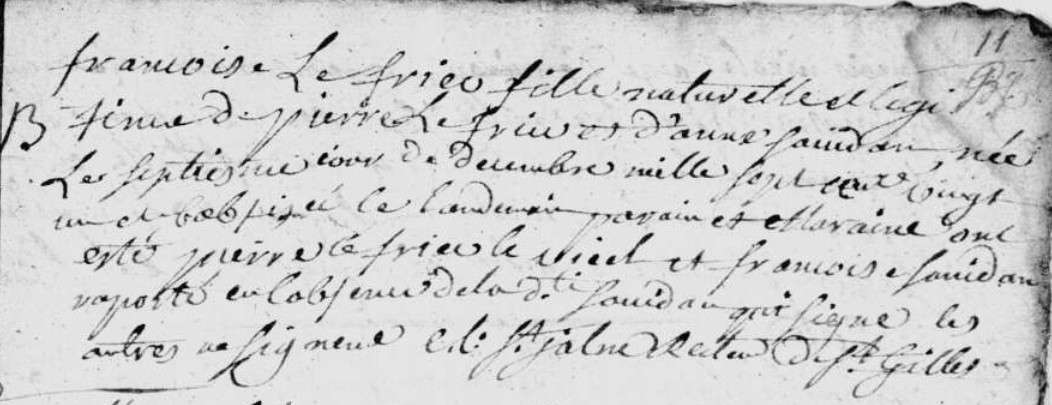 11
francoise Le frieo fille naturelle et legi
B time de pierre Le frieo et d'anne sauidan, née
Le septiesme iour de decembre mille sept cent vingt
un et baebtizé le landemain parain et Maraine ont
esté pierre le frieo le vieel et francoise sauidan
raporté en l'absence de la d.te sauidan qui signe les
autres ne signent St Gilles